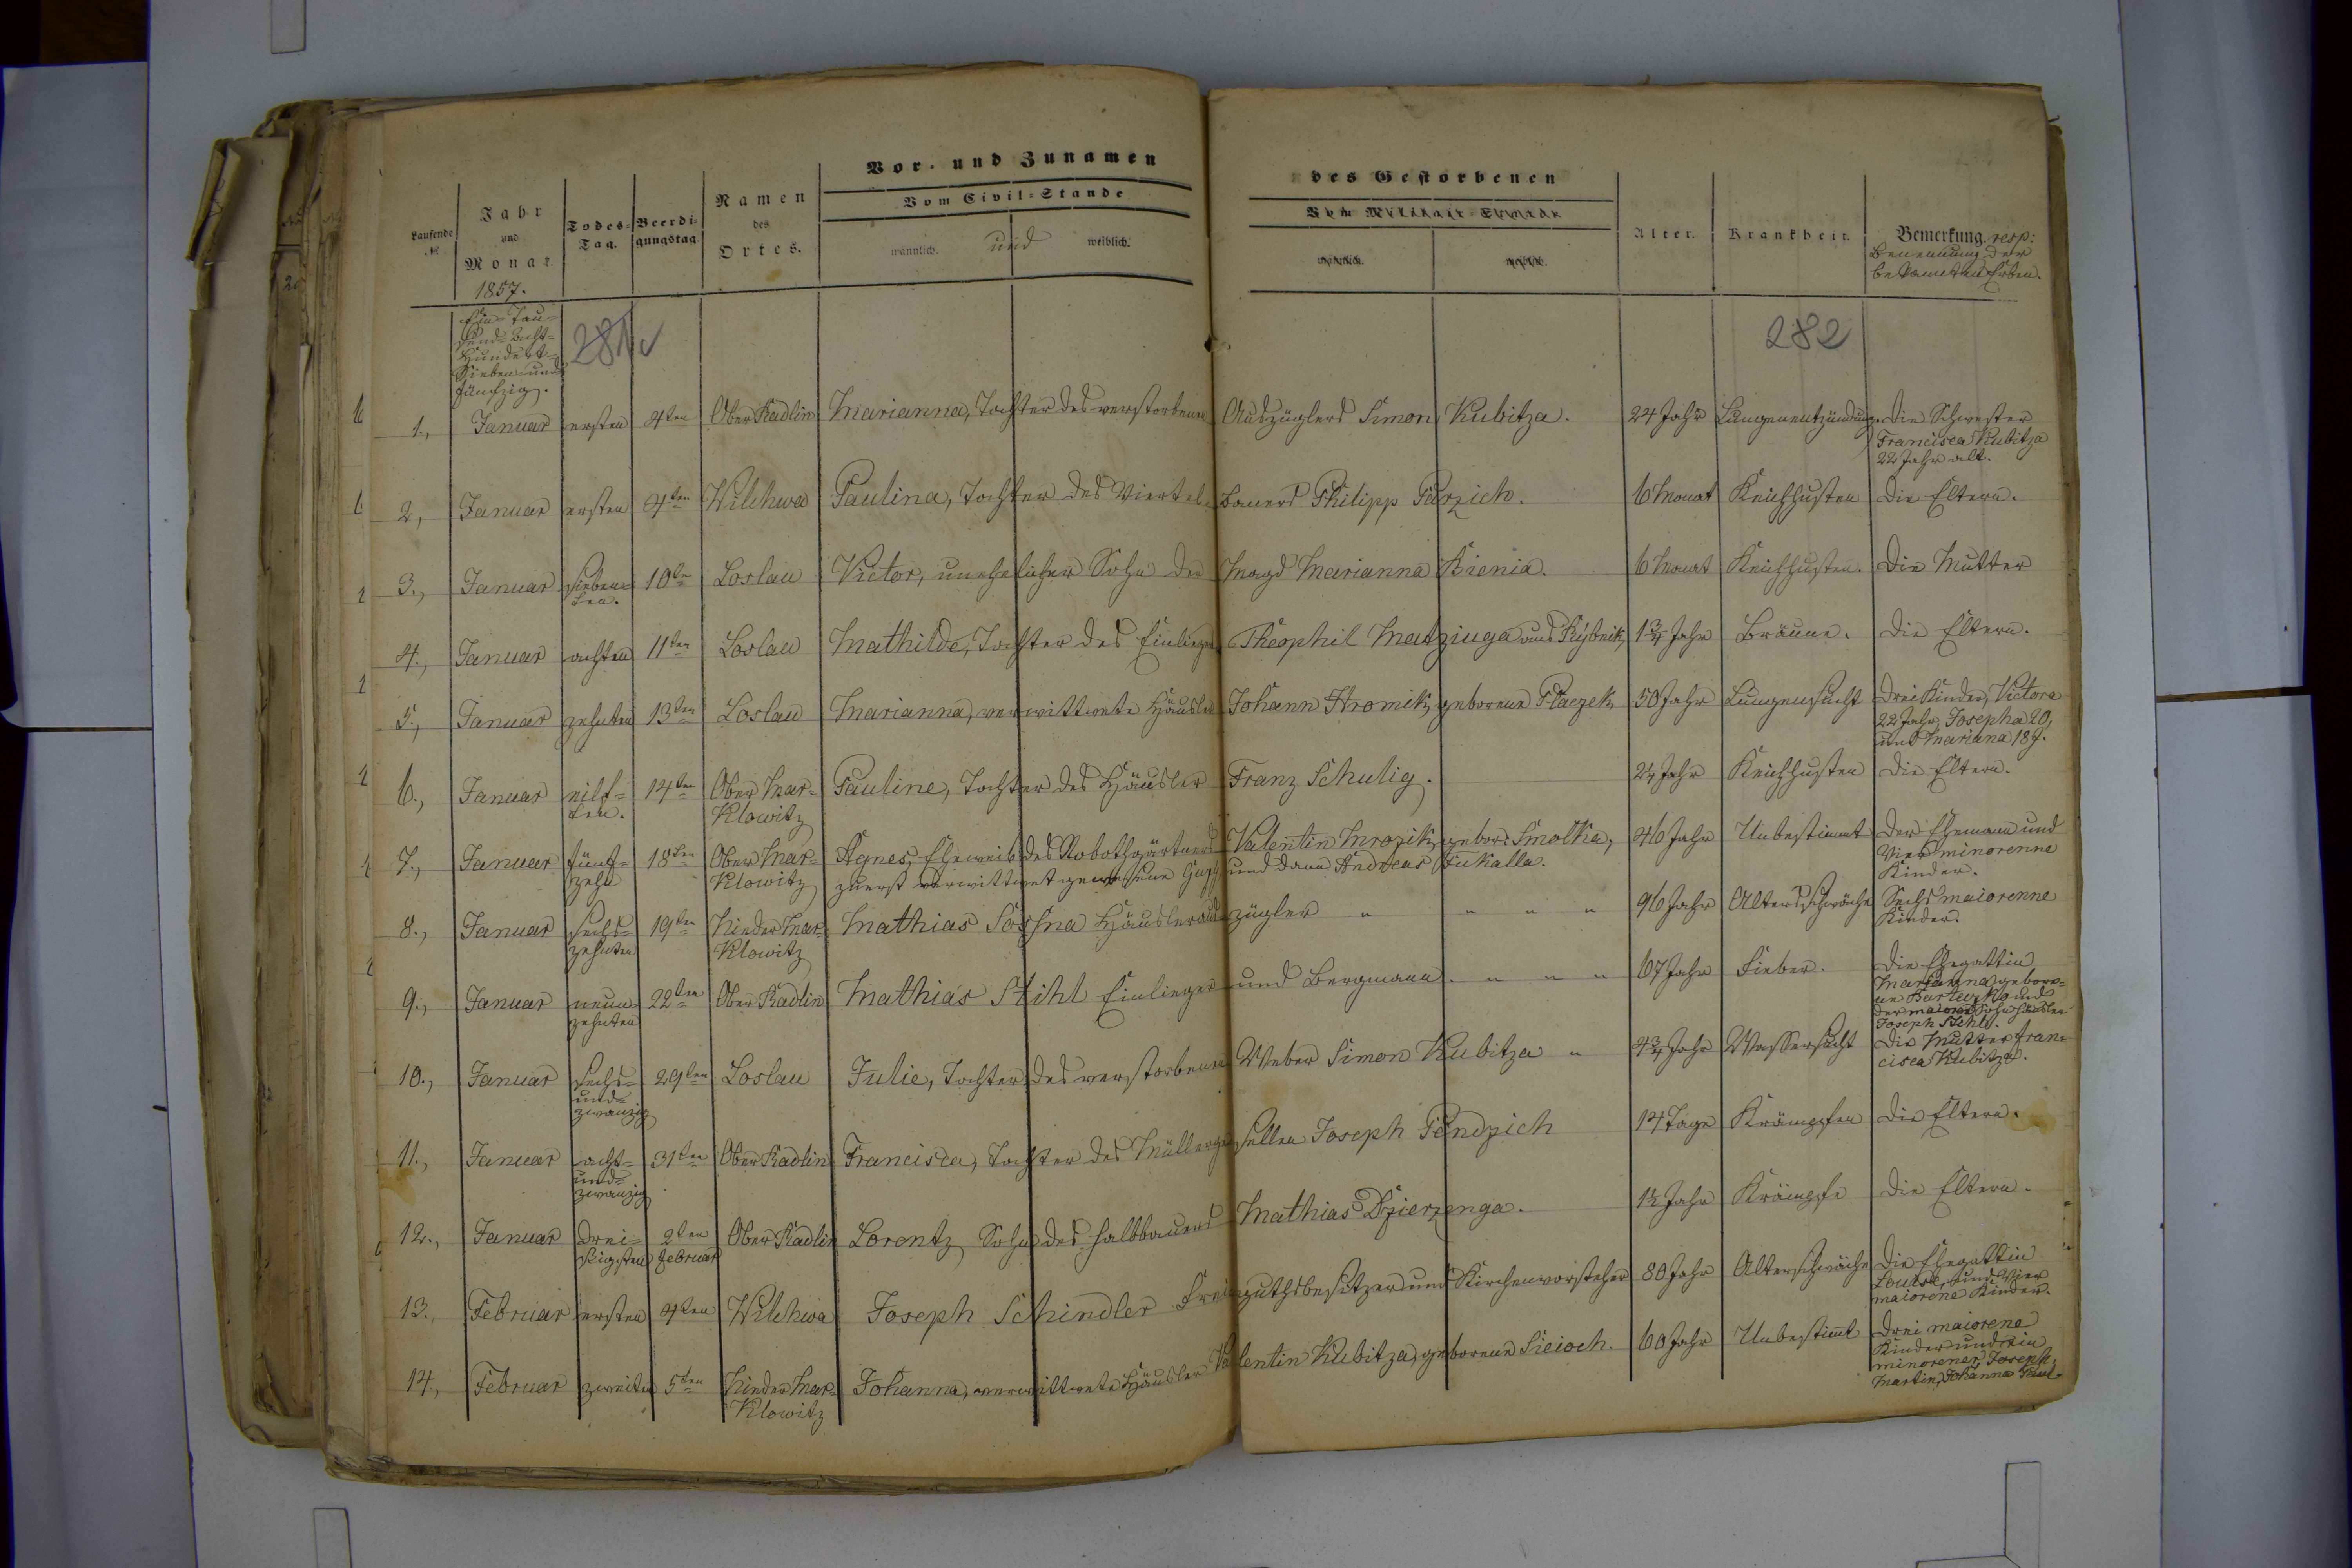 Vor- und Zunamen des Gestorbenen
Laufende №
Jahr und Monat
1857.
Todes-Tag.
Beerdi-gungstag.
Namen des Ortes.
Vom Civil-Stande
männlich. und weiblich.
Vom Militair-Stande
männlich. weiblich.
Alter.
Krankheit.
Bemerkung. resp:
Benennung der
bekannten Erben.
Ein-Tau-
send-Acht-
Hundert-
Sieben-und
fünfzig.
281
282
1., Januar ersten 4ten Ober Radlin Marianna, Tochter des verstorbenen Auszüglers Simon Kubitza. 24 Jahr Lungenentzündung. Die Schwester
Francisca Kubitza
22 Jahr alt.
2., Januar ersten 4ten Wilchwa Paulina, Tochter des Viertel-bauers Philipp Parzich. 6 Monat Keichhusten Die Eltern.
3., Januar sieben-ten. 10ten Loslau Victor, unehelicher Sohn der Magd Marianna Kienia. 6 Monat Keichhusten. Die Mutter
4., Januar achten 11ten Loslau Mathilde, Tochter des Einlieger Theophil Matziuga aus Rybnik, 1¾ Jahr Bräune. Die Eltern.
5., Januar zehnten 13ten Loslau Marianna, verwittwete Häusler Johann Hromik, geborene Placzek, 50 Jahr Lungensucht Drei Kinder, Victora
22 Jahr, Josepha 20,
und Mariana 18 J.
6., Januar eilf-ten. 14ten Ober Mar-klowitz Pauline, Tochter des Häusler Franz Schulig. 2¼ Jahr Keichhusten Die Eltern.
7., Januar fünf-zehn 18ten Ober Mar-klowitz Agnes, Eheweib des Robothgärtners Valentin Mrozik, gebor: Smolka, 46 Jahr Unbestimmt Der Ehemann und
zuerst verwittwet gewesene und dann Andreas Fukalla. Vier minorenne
Kinder.
8., Januar sechs-zehnten 19ten Nieder Mar-klowitz Mathias Sosna Häuslerauszügler " " " " 96 Jahr Altersschwäche Sechs maiorenne
Kinder.
9., Januar neun-zehnten 22ten Ober Radlin Mathias Stihl Einlieger und Bergmann. " " " 67 Jahr Fieber. Die Ehegattin
Marianna, gebore-
ne und
der maiorene Sohn Häusler
Joseph Stihl.
10., Januar sechs-und-zwanzig 29ten Loslau Julie, Tochter des verstorbenen Weber Simon Kubitza " 4¾ Jahr Wassersucht Die Mutter Fran-
cisca Kubitza.
11., Januar acht-und-zwanzig 31ten Ober Radlin Francisca, Tochter des Müllergesellen Joseph Pendzich 14 Tage Krämpfen Die Eltern.
12., Januar drei-ssigsten 2ten Februar Ober Radlin Lorentz, Sohn des Halbbauers Mathias Dzierzenga. 1½ Jahr Krämpfe Die Eltern.
13., Februar ersten 4ten Wilchwa Joseph Schindler Freiguthsbesitzer und Kirchenvorsteher 80 Jahr Altersschwäche Die Ehegattin
Louise, und Vier
maiorene Kinder.
14., Februar zweiten 5ten Nieder Mar-klowitz Johanna, verwittwete Häusler Valentin Kubitza, geborene Sieioch. 60 Jahr Unbestimt Drei maiorene
Kinder und ein
minorener, Joseph,
Martin, Johanna Paul.